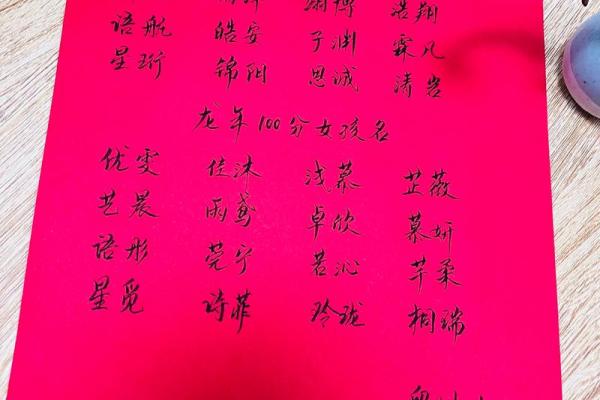 语航 皓安 子渊 霖凡
星珩 锦阳 思诚 涛岩
龙年100分女孩名
优雯 佳沐 浅慕 芷薇
艺晨 雨鸢 卓欣 慕妍
语彤 莞宁 若沁 芊柔
星觅 诗菲 玲珑 桐瑞